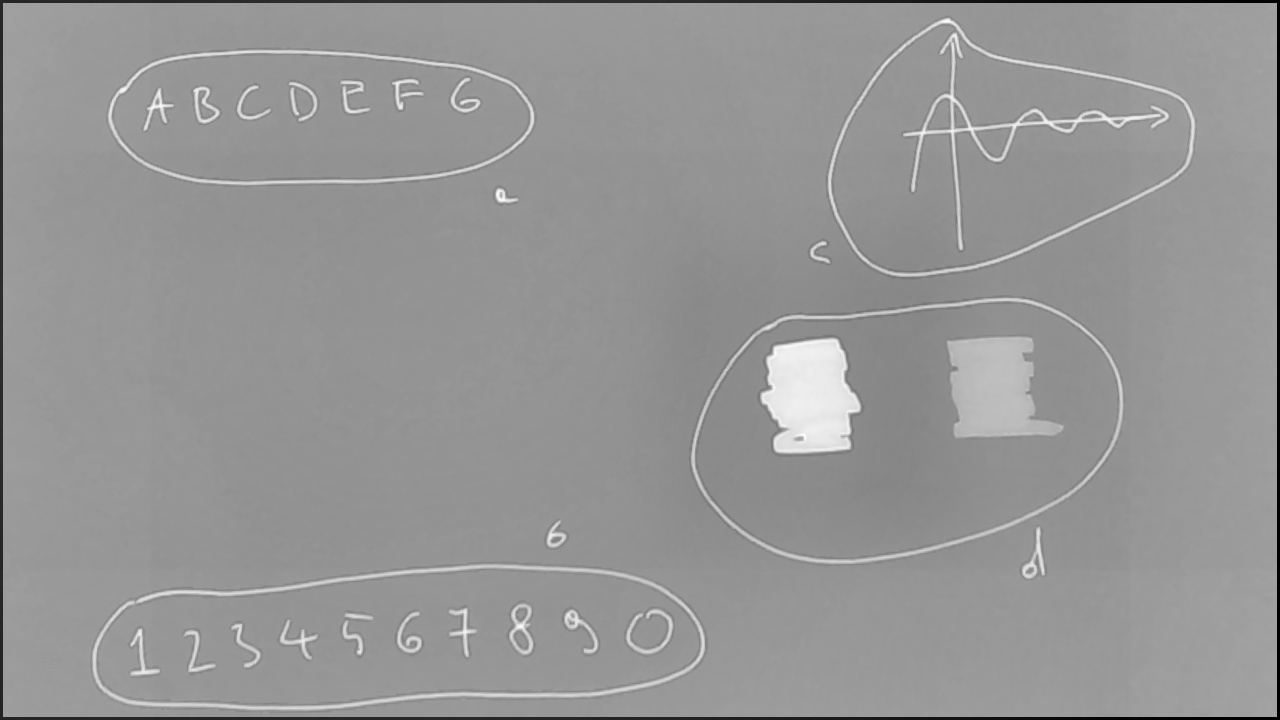 A B C D E F G
a
c
b
d
1 2 3 4 5 6 7 8 9 0